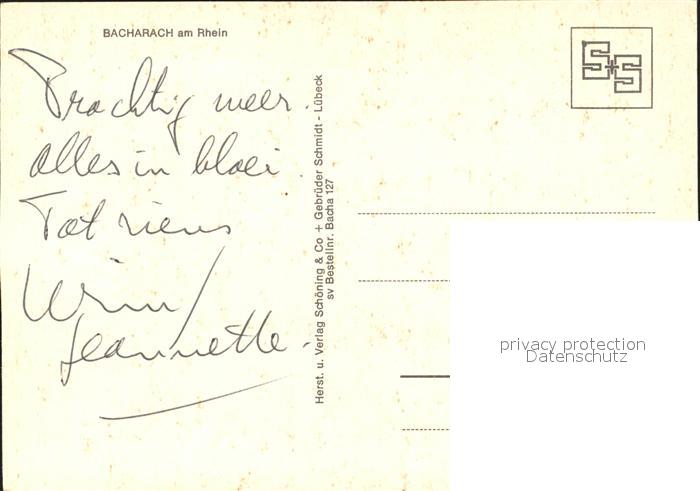 BACHARACH am Rhein
Prachtig weer.
Alles in bloei.
Tot ziens
Wim/
Jeannette.
Herst. u. Verlag Schöning & Co + Gebrüder Schmidt - Lübeck
sv Bestellnr. Bacha 127
S+S
privacy protection
Datenschutz